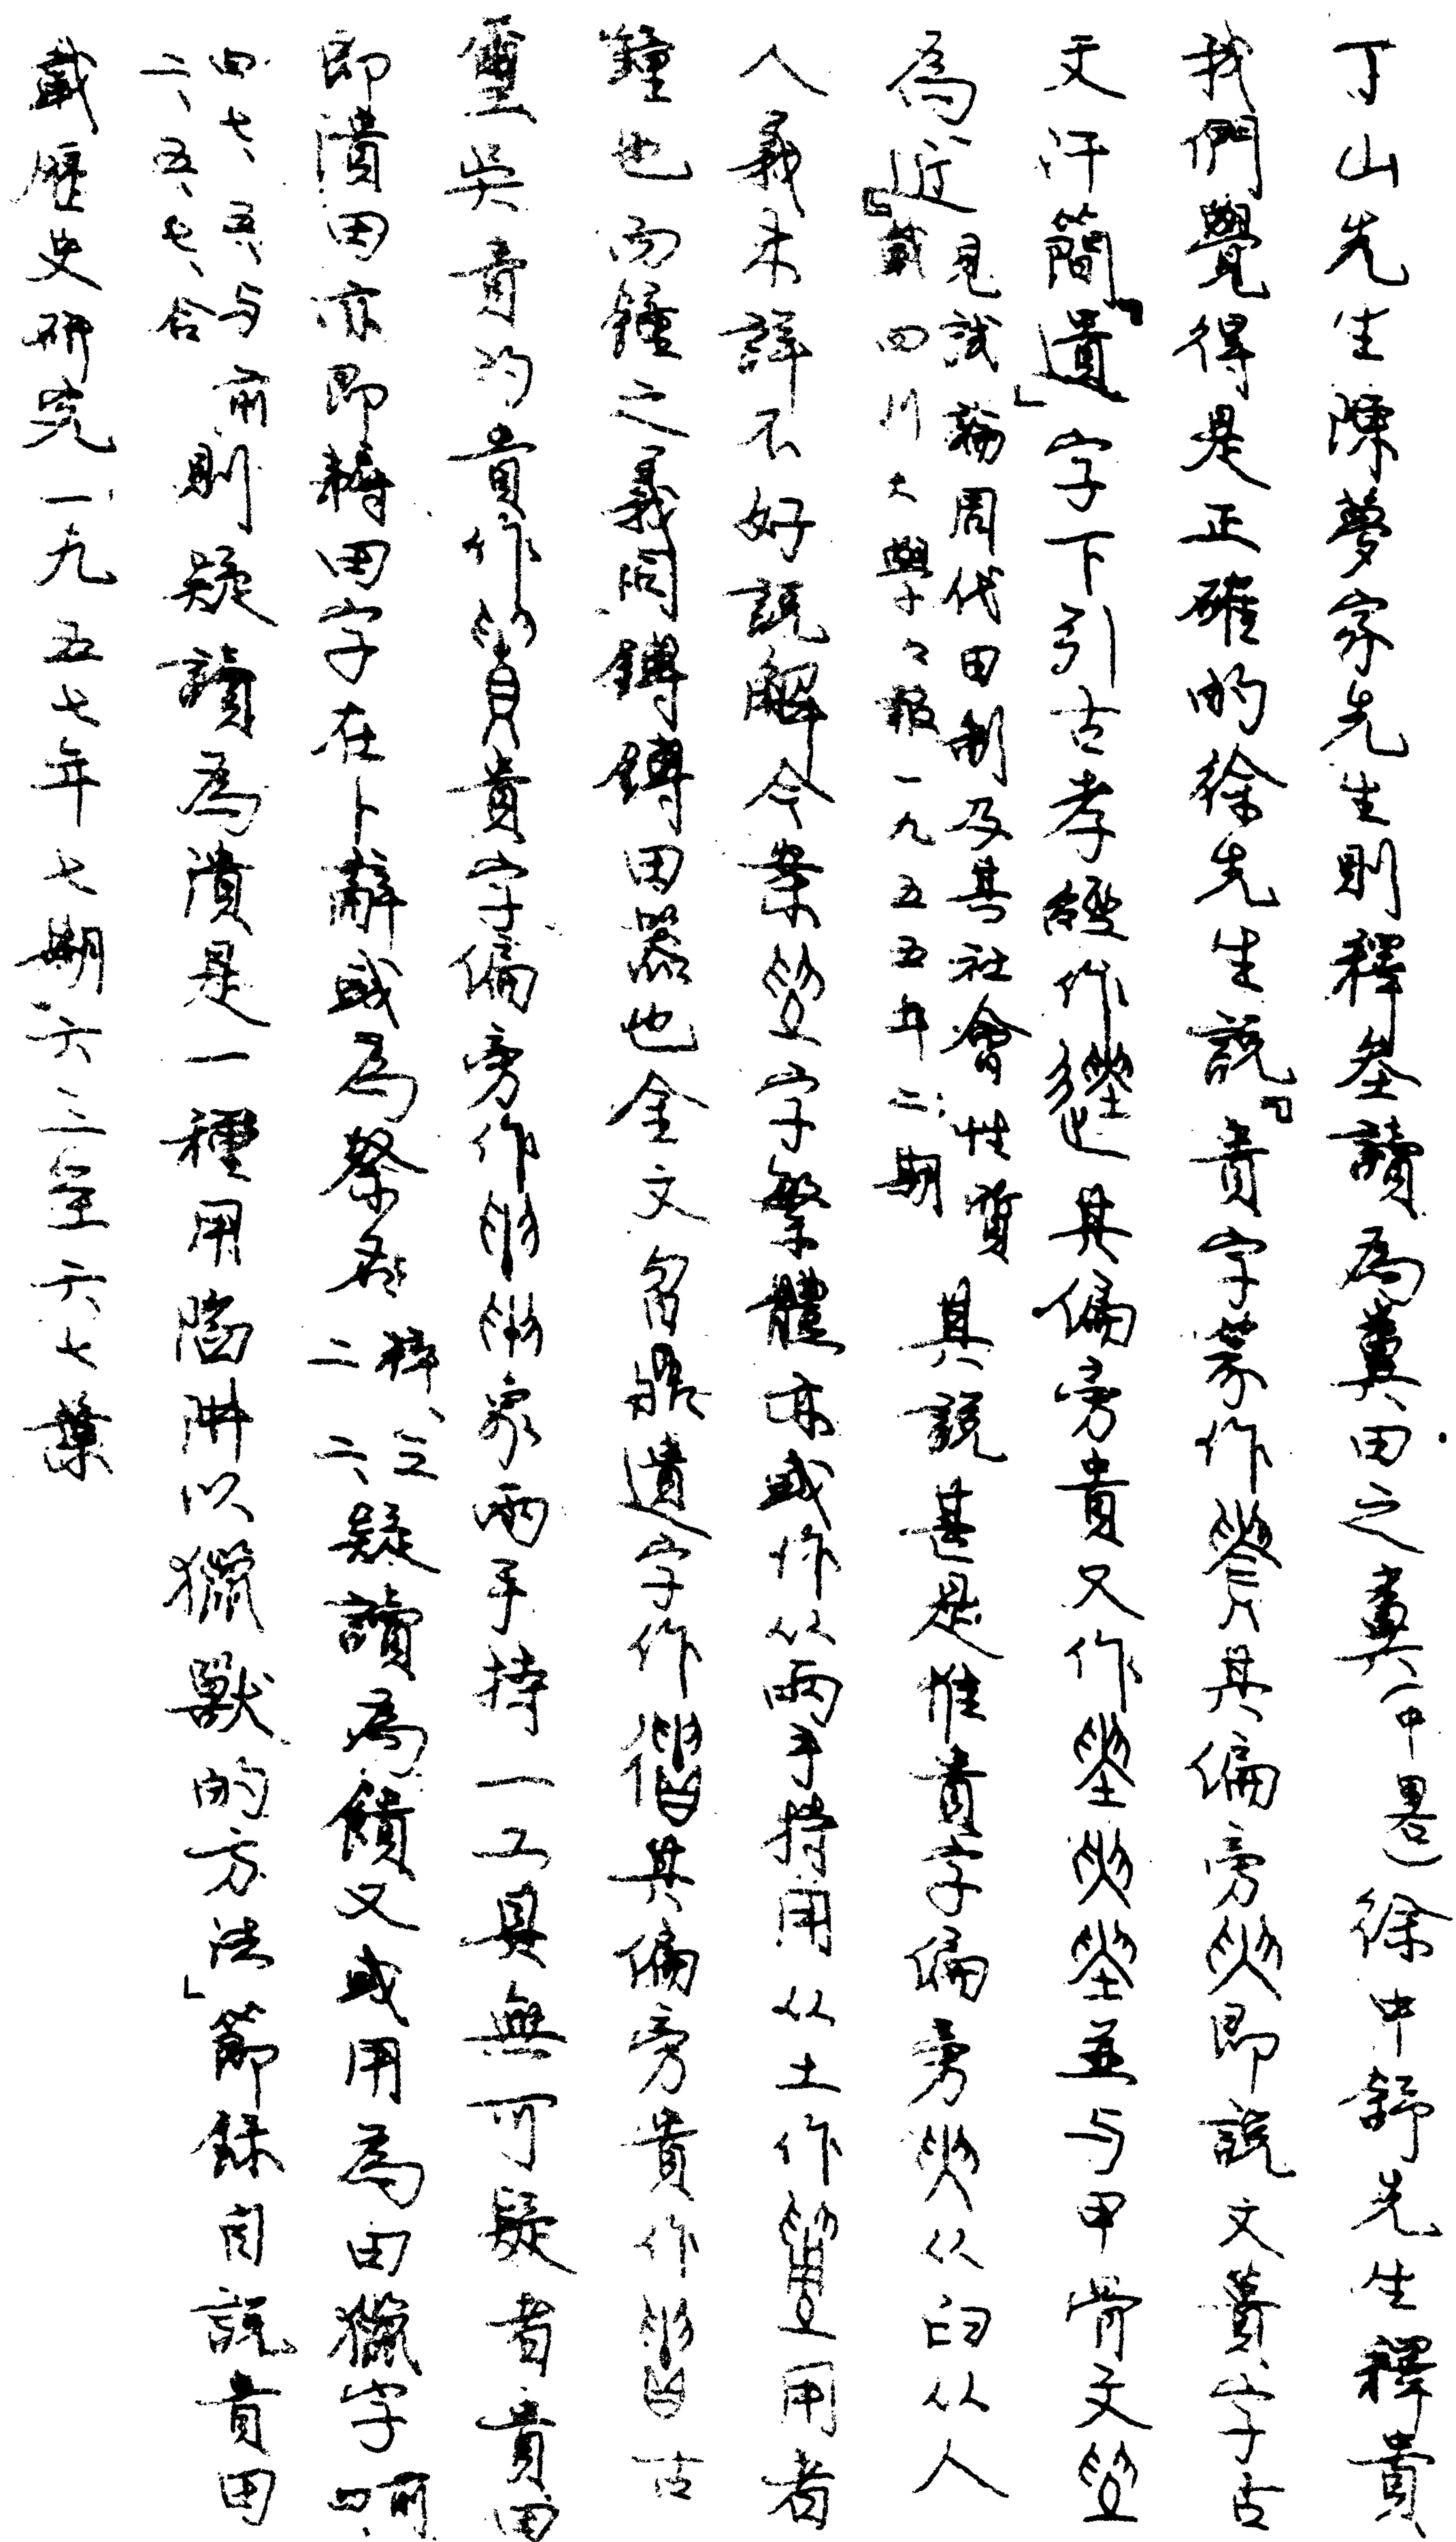 丁山先生陳夢家先生則釋圣讀為糞田之糞(中畧)徐中舒先生釋貴
我們覺得是正確的徐先生說『貴字篆作其偏旁即說文蕢字古
文汗簡『遺』字下引古孝經作其偏旁貴又作並与甲骨文
為近見試論周代田制及其社會性質『載四川大學々報一九五五年二期其說甚是惟貴字偏旁从臼从人
人義未詳不好說解今案字繁體亦或作从兩手持用从土作用者
鐘也而鐘之義同鎛鎛田器也金文旨鼎遺字作其偏旁貴作古
璽吳貴的貴作貴字偏旁作象兩手持一工具無可疑者貴田
即潰田亦即耨田字在卜辭或為祭名粹、三二六、疑讀為饋又或用為田獵字前四、
四七、五、与前二、五、七、合則疑讀為潰是一種用陷阱以獵獸的方法」節錄自說貴田
載歷史研究一九五七年七期六三至六七葉